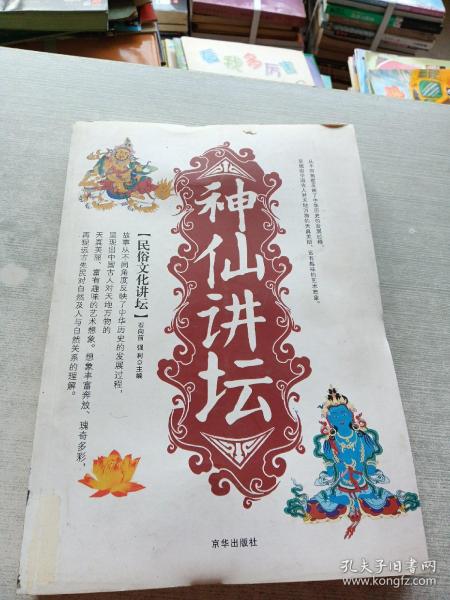 看我多厉害
神仙讲坛
【民俗文化讲坛】
石向前 强利◎主编
故事从不同角度反映了中华历史的发展过程，
显现出中国古人对天地万物的
天真美丽、富有趣味的艺术想象。想象丰富奔放、瑰奇多彩，
再现远古先民对自然及人与自然关系的理解。
京华出版社
孔夫子旧书网
www.kongfz.com